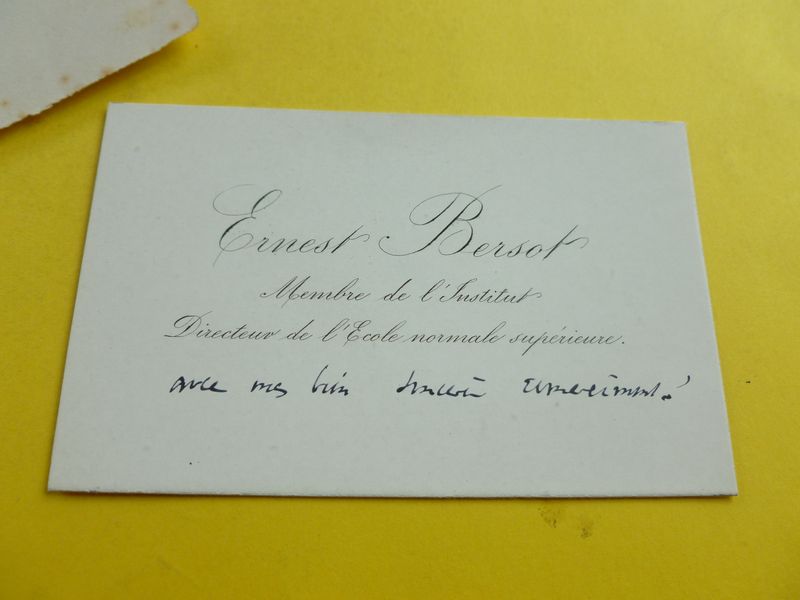 Ernest Bersot
Membre de l'Institut
Directeur de l'Ecole normale supérieure.
avec mes bien sincères remerciements.